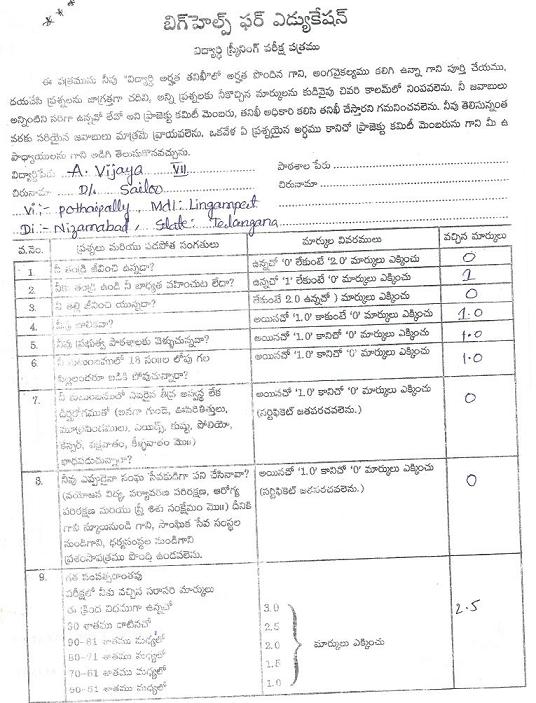 బిగ్‌హెల్ప్ ఫర్ ఎడ్యుకేషన్
విద్యార్థి స్క్రీనింగ్ పరీక్ష పత్రము
ఈ పత్రమును నీవు "విద్యార్థి అర్హత తనిఖీ"లో అర్హత పొందిన గాని, అంగవైకల్యము కలిగి ఉన్నా గాని పూర్తి చేయుము,
దయచేసి ప్రశ్నలను జాగ్రత్తగా చదివి, అన్ని ప్రశ్నలకు నీకొచ్చిన మార్కులను కుడివైపు చివరి కాలమ్‌లో నింపవలెను. నీ జవాబులు
అన్నింటిని సరిగా ఉన్నచో లేవో అని ప్రాజెక్టు కమిటీ మెంబరు, తనిఖీ అధికారి కలిసి తనిఖీ చేస్తారని గమనించవలెను. నీవు తెలిసినంత
వరకు సరియైన జవాబులు మాత్రమే వ్రాయవలెను. ఒకవేళ ఏ ప్రశ్నయైన అర్థము కానిచో ప్రాజెక్టు కమిటీ మెంబరును గాని మీ ఉ
పాధ్యాయులను గాని అడిగి తెలుసుకొనవచ్చును.
విద్యార్థిపేరు A. Vijaya VII పాఠశాల పేరు
చిరునామా D/o Sailoo చిరునామా
Vi:- Pothaipally, Mdl: Lingampet
Di:- Nizamabad, State: Telangana
వ.నెం. ప్రశ్నలు మరియు పదపోత సంగతులు మార్కుల వివరములు వచ్చిన మార్కులు
1. నీ తండ్రి జీవించి ఉన్నదా? ఉన్నచో '0' లేకుంటే '2.0' మార్కులు ఎక్కించు 0
2. నీకు తండ్రి ఉండి నీ బాధ్యత వహించుట లేదా? ఉన్నచో '1' లేకుంటే '0' మార్కులు ఎక్కించు 1
3. నీ తల్లి జీవించి యున్నదా? లేకుంటే 2.0 ఉన్నచో ) మార్కులు ఎక్కించు 0
4. నీవు బాలికవా? అయినచో '1.0' కాకుంటే '0' మార్కులు ఎక్కించు 1.0
5. నీవు ప్రభుత్వ పాఠశాలకు వెళ్ళుచున్నవా? అయినచో '1.0' కానిచో '0' మార్కులు ఎక్కించు 1.0
6. నీ కుటుంబములో 18 సం॥ల లోపు గల అయినచో '1.0' కానిచో '0' మార్కులు ఎక్కించు 1.0
పిల్లలందరూ బడికి పోవుచున్నారా?
7. నీ కుటుంబములో ఎవరైన తీవ్ర అస్వస్థ లేక అయినచో '1.0' కానిచో '0' మార్కులు ఎక్కించు 0
దీర్ఘరోగముతో (అనగా గుండె, ఊపిరితిత్తులు, (సర్టిఫికెట్ జతపరచవలెను.)
మూత్రపిండములు, ఎయిడ్స్, కుష్ఠు, పోలియో,
కేన్సర్, పక్షవాతం, కీళ్ళవాతం మొ॥)
బాధపడుచున్నారా?
8. నీవు ఎప్పుడైనా సంఘ సేవకుడిగా పని చేసినావా? అయినచో '1.0' కానిచో '0' మార్కులు ఎక్కించు 0
(వయోజన విద్య, పర్యావరణ పరిరక్షణ, ఆరోగ్య (సర్టిఫికెట్ జతపరచవలెను.)
పరిరక్షణ మరియు స్త్రీ శిశు సంక్షేమం మొ॥) దీనికి
గాను స్కూలునుండి గాని, సాంఘిక సేవ సంస్థల
నుండిగాని, ధర్మసంస్థల నుండిగాని
ప్రశంసాపత్రము పొంది ఉండవలెను.
9. గత సంవత్సరాంతపు
పరీక్షలో నీవు వచ్చిన సరాసరి మార్కులు
ఈ క్రింద విధముగా ఉన్నచో 3.0 2.5
90 శాతము దాటినచో 2.5
90-81 శాతము మధ్యలో 2.0 మార్కులు ఎక్కించు
80-71 శాతము మధ్యలో 1.5
70-61 శాతము మధ్యలో 1.0
60-51 శాతము మధ్యలో